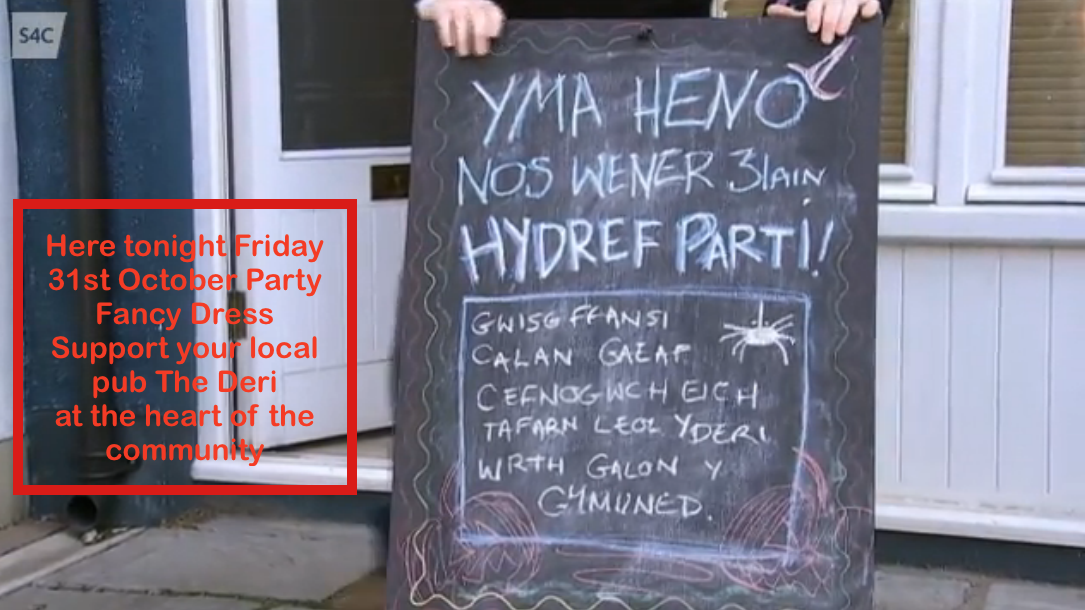 S4C
YMA HENO
NOS WENER 31ain
HYDREF PARTI!
GWISG FFANSI
CALAN GAEAF
CEFNOGWCH EICH
TAFARN LEOL Y DERI
WRTH GALON Y
GYMUNED.
Here tonight Friday
31st October Party
Fancy Dress
Support your local
pub The Deri
at the heart of the
community